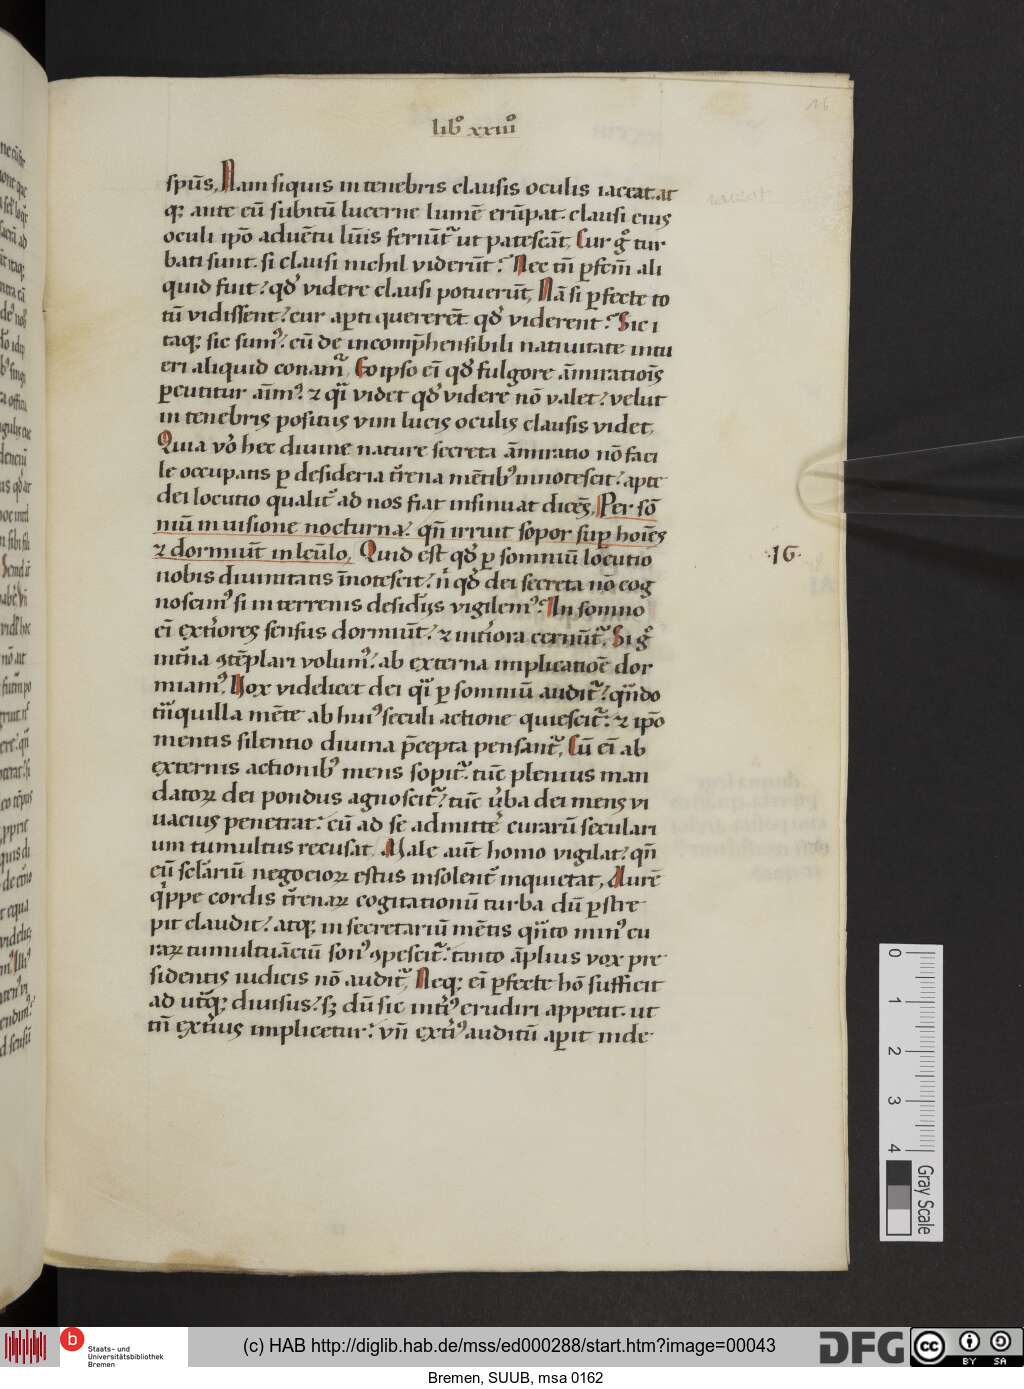 16
libº xxiiiiº
spūs, Nam siquis in tenebris clausis oculis iaceat. at
q; ante eū subitū lucerne lumē erūpat. clausi eius
oculi ip̄o aduētu lūis feriūt᷑ ut patescāt, Cur gͦ tur
bati sunt. si clausi nichil viderūt? Nec tn̄ ꝑfcm̄ ali
quid fuit? qđ videre clausi potuerūt, Nā si ꝑfecte to
tū vidissent? cur aꝑti quererēt qđ viderent? Sic i
taq; sic sum᷒? cū de incomp̄hensibili natiuitate intu
eri aliquid conam᷑, Eo ipso eī qđ fulgore āmiratiois̄
ꝑcutitur aīm᷒? ⁊ qͣi videt qđ videre nō valet? velut
in tenebris positus vim lucis oculis clausis videt,
Quia vͦo hec diuine nature secreta āmiratio nō faci
le occupatis ꝑ desideria t̄rena mētib᷒ innotescit? apte
dei locutio qualit᷑ ad nos fiat insinuat dicēs, Per sō
niū in uisione nocturna? qn̄ irruit sopor suꝑ hoīes
⁊ dormiūt in lc̄ulo, Quid est qđ ꝑ somniū locutio
nobis diuinitatis īnotescit? n̄ qđ dei secreta nō cog
noscim᷒ si in terrenis desid̄ijs vigilem᷒? In somno
eī ext̄iores sensus dormiūt? ⁊ int̄iora cernūt᷑? Si gͦ
int̄na ꝯtēplari volum᷒? ab externa implicatiōe dor
miam᷒? Uox videlicet dei qͣi ꝑ somniū audit᷑? qn̄do
tn̄quilla mēte ab hui᷒ seculi actione quiescit᷑? ⁊ ip̄o
mentis silentio diuina p̄cepta pensant᷑, Cū eī ab
externis actionib᷒ mens sopit᷑. tūc plenius man
datoꝝ dei pondus agnoscit᷑? tūc ūba dei mens vi
uacius penetrat? cū ad se admitt᷑e curarū seculari
um tumultus recusat, Male aūt homo vigilat? qn̄
eū sclarīū negocioꝝ estus insolent᷑ inquietat, Aurē
qͥppe cordis t̄renaꝝ cogitationū turba dū ꝑstre
pit claudit? atq; in secretariū mētis qn̄to min᷒ cu
raꝝ tumultuāciū son᷒ ꝯpescit᷑? tanto āplius vox pre
sidentis iudicis nō audit᷑, Neq; eī ꝑfecte hō sufficit
ad utͣq; diuisus? sꝫ dū sic int̄i᷒ erudiri appetit. ut
tn̄ ext̄ius implicetur? vn̄ ext̄i᷒ auditū aꝑit inde
·16·
0 1 2 3 4
Gray Scale
b Staats- und
Universitätsbibliothek
Bremen
(c) HAB http://diglib.hab.de/mss/ed000288/start.htm?image=00043
DFG
cc BY SA
Bremen, SUUB, msa 0162